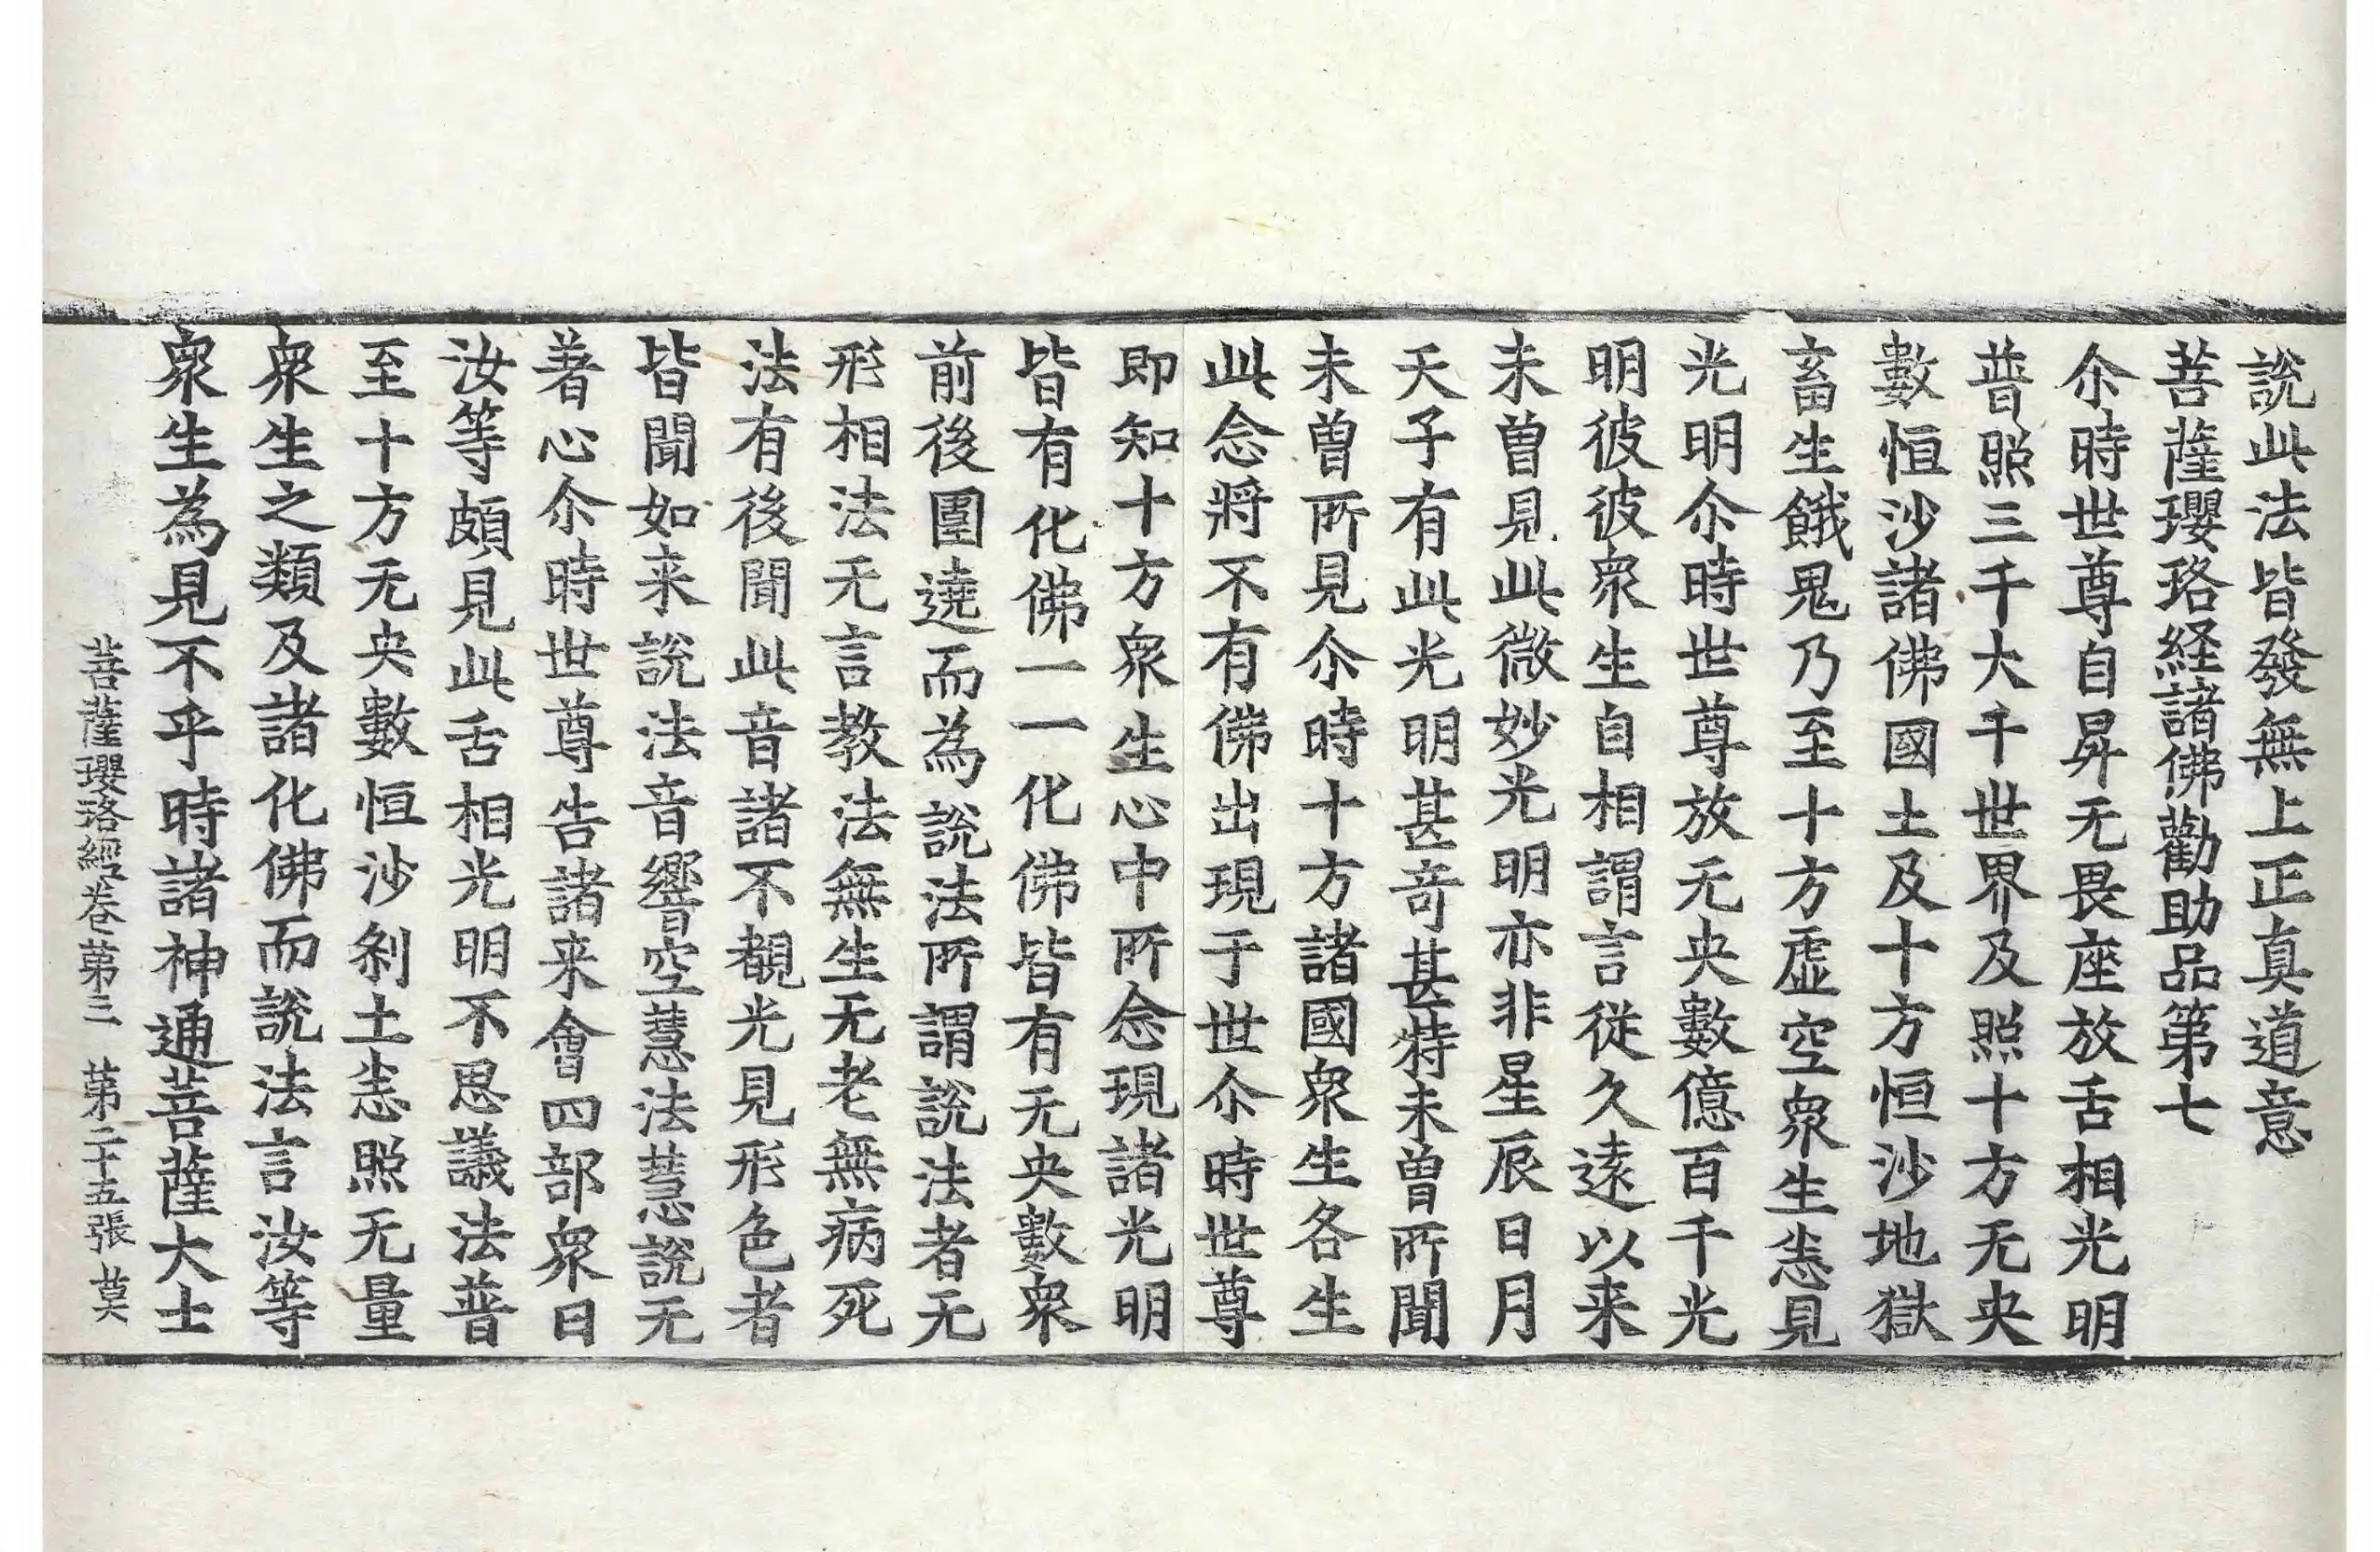 說此法皆發無上正真道意
菩薩瓔珞経諸佛勸助品第七
尒時世尊自昇无畏座放舌相光明
普照三千大千世界及照十方无央
數恒沙諸佛國土及十方恒沙地獄
畜生餓鬼乃至十方虛空衆生悉見
光明尒時世尊放无央數億百千光
明彼彼衆生自相謂言從久遠以来
未曾見此微妙光明亦非星辰日月
天子有此光明甚奇甚特未曾所聞
未曾所見尒時十方諸國衆生各生
此念將不有佛出現于世尒時世尊
即知十方衆生心中所念現諸光明
皆有化佛一一化佛皆有无央數衆
前後圍遶而為說法所謂說法者无
形相法无言教法無生无老無病死
法有後聞此音諸不覩光見形色者
皆聞如来說法音響空慧法慧說无
著心尒時世尊告諸来會四部衆曰
汝等頗見此舌相光明不思議法普
至十方无央數恒沙剎土悉照无量
衆生之類及諸化佛而說法言汝等
衆生為見不乎時諸神通菩薩大士
菩薩瓔珞經卷第三 第二十五張 莫